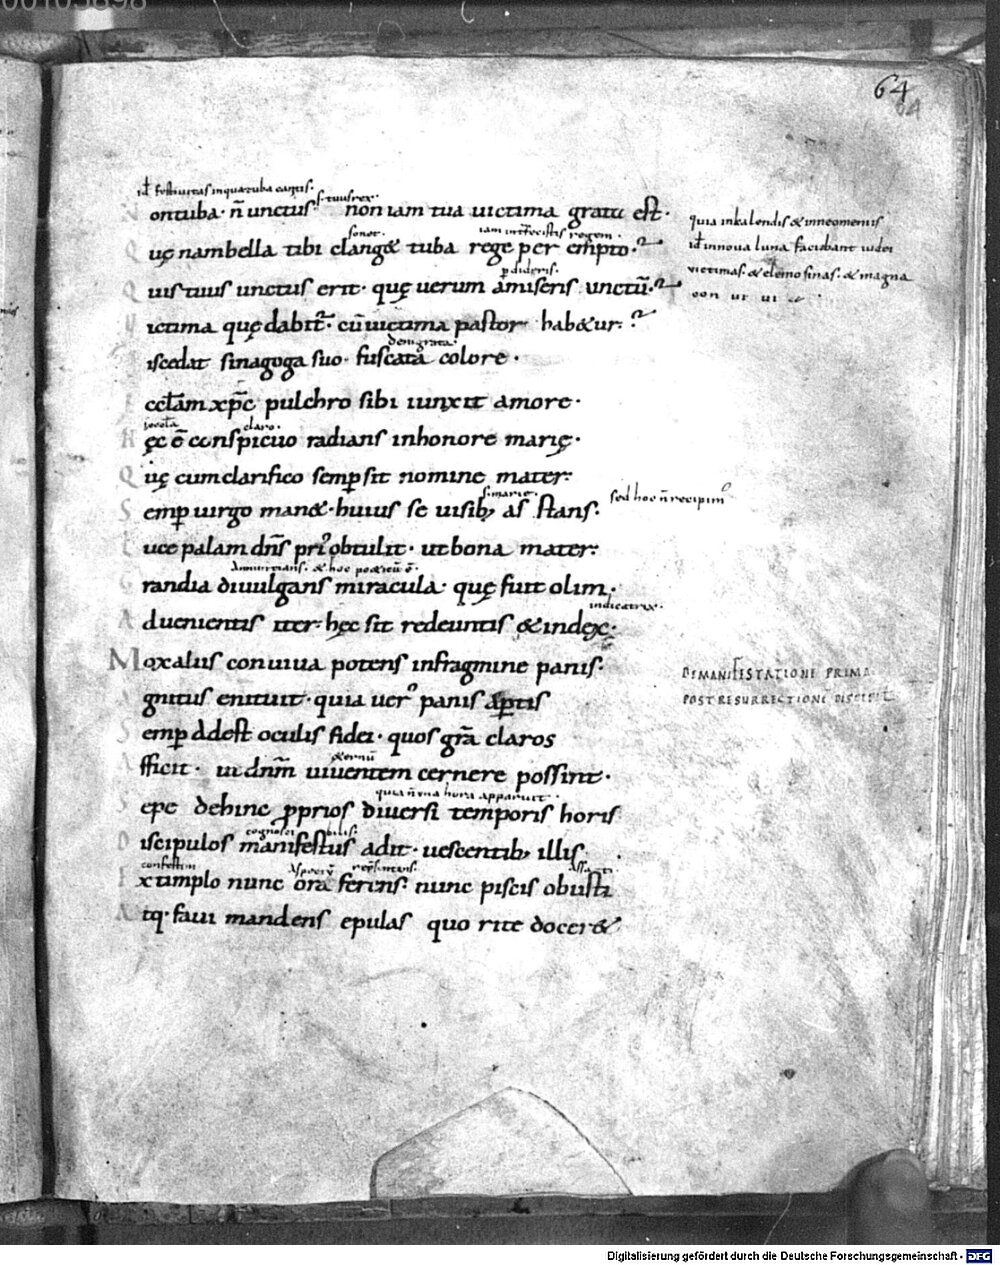 64
id festiuitas in qua tuba canitis.
s. tuus rex.
Non tuba· n̄ unctus non iam tua uictima grata est·
sonet. iam interfecistis regem.
Quę nam bella tibi clang& tuba rege perempto·?
perdideris.
Quis tuus unctus erit· quę uerum amiseris unctū·?
Victima quę dabit̄· cū uictima pastor hab&ur·?
denigrata·
Discedat sinagoga suo· fuscata colore·
Eccl̄am xp̄c pulchro sibi iunxit amore·
claro·
Hęc ē conspicuo radians in honore marię·
Quę cum clarifico semp sit nomine mater·
s. marię·
Semp uirgo man&· huius se uisib; astans·
Luce palam dn̄s pri᷒ obtulit· ut bona mater·
Grandia diuulgans miracula· quę fuit olim·
indicatrix·
Aduenientis iter· hęc sit redeuntis & index·
Mox alius conuiua potens in fragmine panis·
Agnitus enituit· quia uer᷒ panis aptis
Semp adest oculis fidei· quos gr̄a claros
Afficit· ut dn̄m uiuentem cernere possint·
quia n̄ una hora apparuit·
Sepe dehinc pprios diuersi temporis horis
Discipulos manifestus adit· uescentib; illis·
confestim
Extimplo nunc ora ferens· nunc piscis obusti
Atq· faui mandens epulas quo rite docer&
quia in kalendis & in neomeniis
id in noua luna faciebant iudei
uictimas· & elemosinas· & magna
sed hoc n̄ recipim᷒
DE MANIFESTATIONE PRIMA
POST RESURRECTIONE
Digitalisierung gefördert durch die Deutsche Forschungsgemeinschaft - DFG